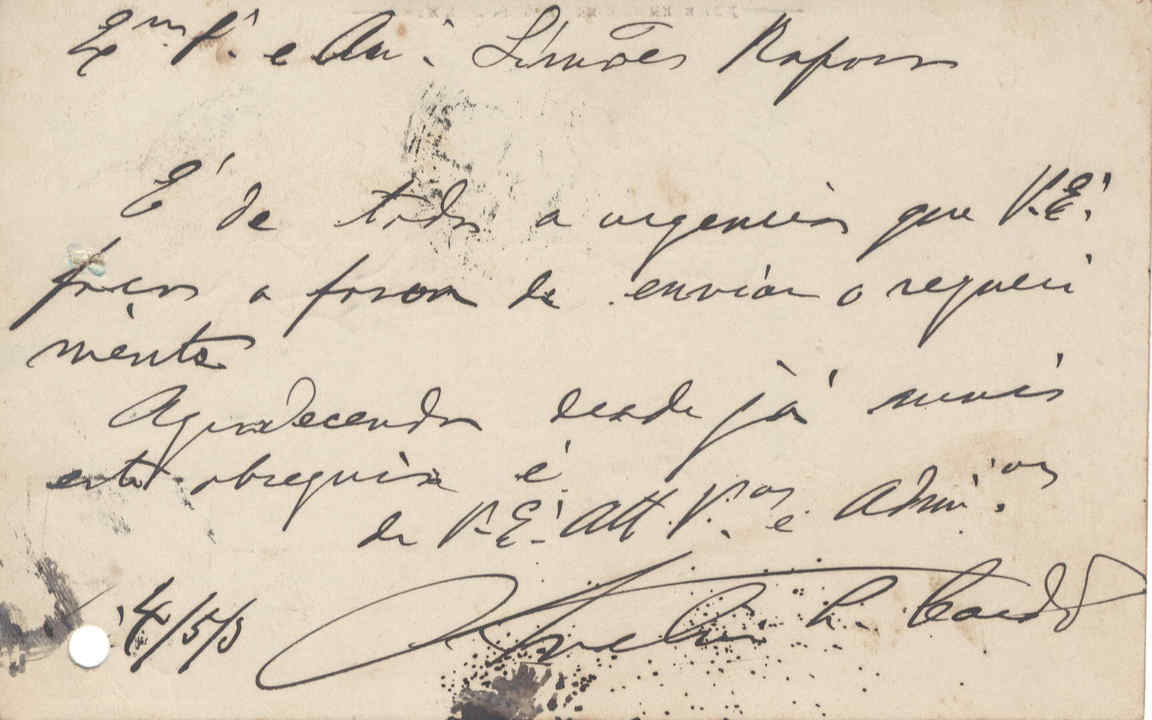 Exmº Sr. e Am.º Simões Raposo
É de toda a urgencia que V. Ex.ª
faça o favor de enviar o requeri
mento
Agradecendo desde já mais
este obsequio é
de V. Ex.ª Att.º V.ºr e Adm.ºr
4/5/3